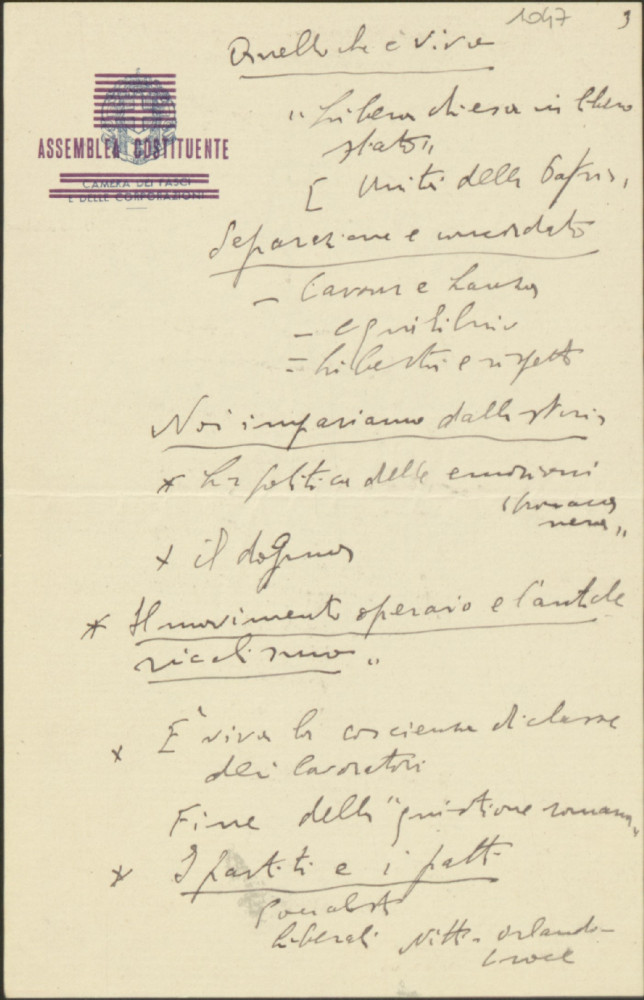 1047 9
Quello che è vivo
"Libera chiesa in libero
stato"
[ Unità della Patria,
Separazione e concordato
- Cavour e Lanza
- equilibrio
= Libertà e rispetto
Noi impariamo dalla storia
* La politica delle emozioni
cronaca
nera"
x il dogma
* Il movimento operaio e l'anticle
ricalismo"
x È viva la coscienza di classe
dei lavoratori
Fine della "quistione romana"
* I partiti e i patti
Socialisti
Liberali Nitti - Orlando -
Croce
ASSEMBLEA COSTITUENTE
CAMERA DEI FASCI
E DELLE CORPORAZIONI